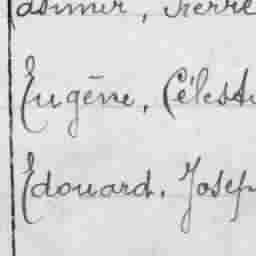 asimir, Pierre
Eugène, Célesti
Edouard, Josep